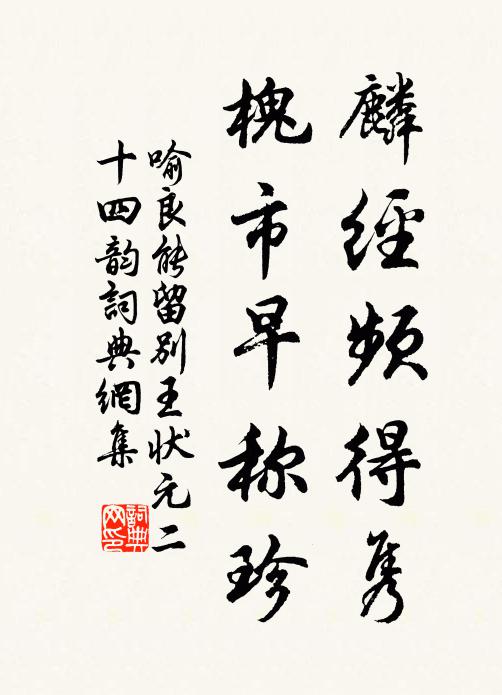 麟經頻得隽
槐市早称珍
喻良能留别王状元二
十四韵詞典網集
詞典網印